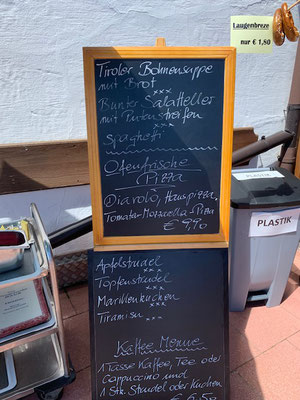 Laugenbreze
nur € 1,80
Tiroler Bohnensuppe
mit Brot
xxx
Bunter Salatteller
mit Putenstreifen
xxx
Spaghetti
Ofenfrische
Pizza
Diavolo, Hauspizza,
Tomaten-Mozzarella Pizza
PLASTIK
PLASTIK
Apfelstrudel
xxx
Topfenstrudel
xxx
Marillenkuchen
xxx
Tiramisu
Kaffee Menue
1 Tasse Kaffee, Tee oder
Cappuccino und
1 Stk. Strudel oder Kuchen